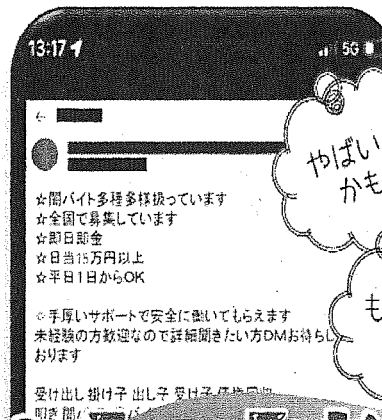 13:17
5G
☆闇バイト多種多様扱っています
☆全国で募集しています
☆即日即金
☆日当15万円以上
☆平日1日からOK
☆手厚いサポートで安全に働いてもらえます
未経験の方歓迎なので詳細聞きたい方DMお待ちし
おります
受け出し 掛け子 出し子 受け子
叩き 闇バ
やばい
かも
も